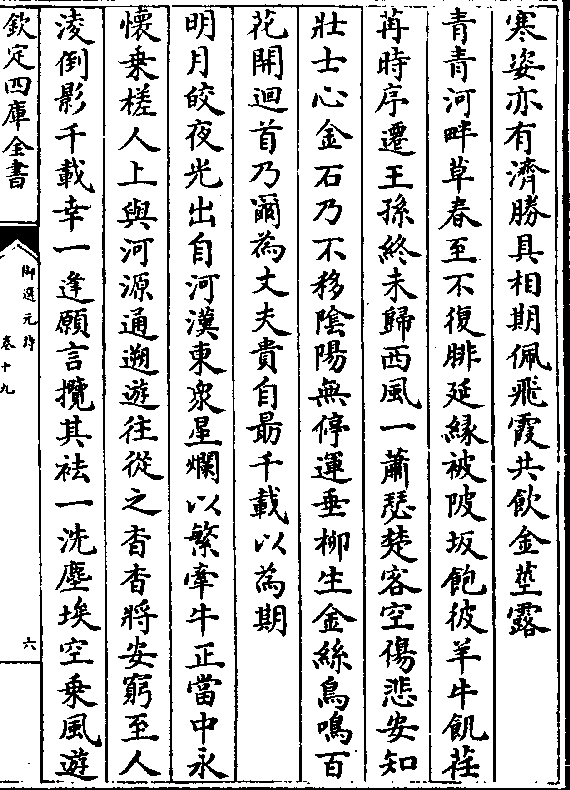 寒姿亦有濟勝具相期佩飛霞共飲金莖露
青青河畔草春至不復腓延緣被陂坂飽彼羊牛飢荏
苒時序遷王孫終未歸西風一蕭瑟楚客空傷悲安知
壯士心金石乃不移陰陽無停運垂柳生金絲鳥鳴百
花開迴首乃爾為丈夫貴自勗千載以為期
明月皎夜光出自河漢東衆星爛以繁牽牛正當中永
懷乗槎人上與河源通遡遊往從之杳杳將安窮至人
淩倒影千載幸一逢願言攬其袪一洗塵埃空乗風遊
欽定四庫全書
御選元詩
卷十九
六